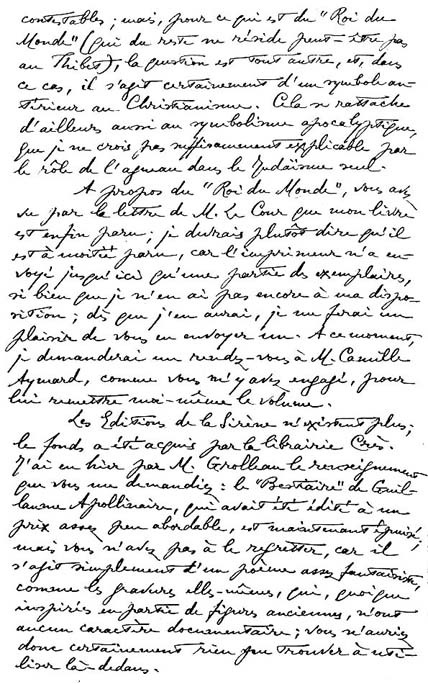 contestables ; mais, pour ce qui est du "Roi du
Monde" (qui du reste ne réside peut-être pas
au Thibet), la question est tout autre, et, dans
ce cas, il s'agit certainement d'un symbole an-
térieur au Christianisme. Cela se rattache
d'ailleurs aussi au symbolisme apocalyptique,
que je ne crois pas suffisamment explicable par
le rôle de l'agneau dans le Judaïsme seul.
A propos du "Roi du Monde", vous avez
su par la lettre de M. Le Cour que mon livre
est enfin paru ; je devrais plutôt dire qu'il
est à moitié paru, car l'imprimeur n'a en-
voyé jusqu'ici qu'une partie des exemplaires,
si bien que je n'en ai pas encore à ma dispo-
sition ; dès que j'en aurai, je me ferai un
plaisir de vous en envoyer un. A ce moment,
je demanderai un rendez-vous à M. Camille
Aymard, comme vous m'y avez engagé, pour
lui remettre moi-même le volume.
Les Editions de la Sirène n'existent plus ;
le fonds a été acquis par la librairie Crès.
J'ai eu hier par M. Grolleau le renseignement
que vous me demandiez : le "Bestiaire" de Guil-
laume Apollinaire, qui avait été édité à un
prix assez peu abordable, est maintenant épuisé ;
mais vous n'avez pas à le regretter, car il
s'agit simplement d'un poème assez fantaisiste,
comme les gravures elles-mêmes, qui, quoique
inspirées en partie de figures anciennes, n'ont
aucun caractère documentaire ; vous n'auriez
donc certainement rien pu trouver à uti-
liser là-dedans.